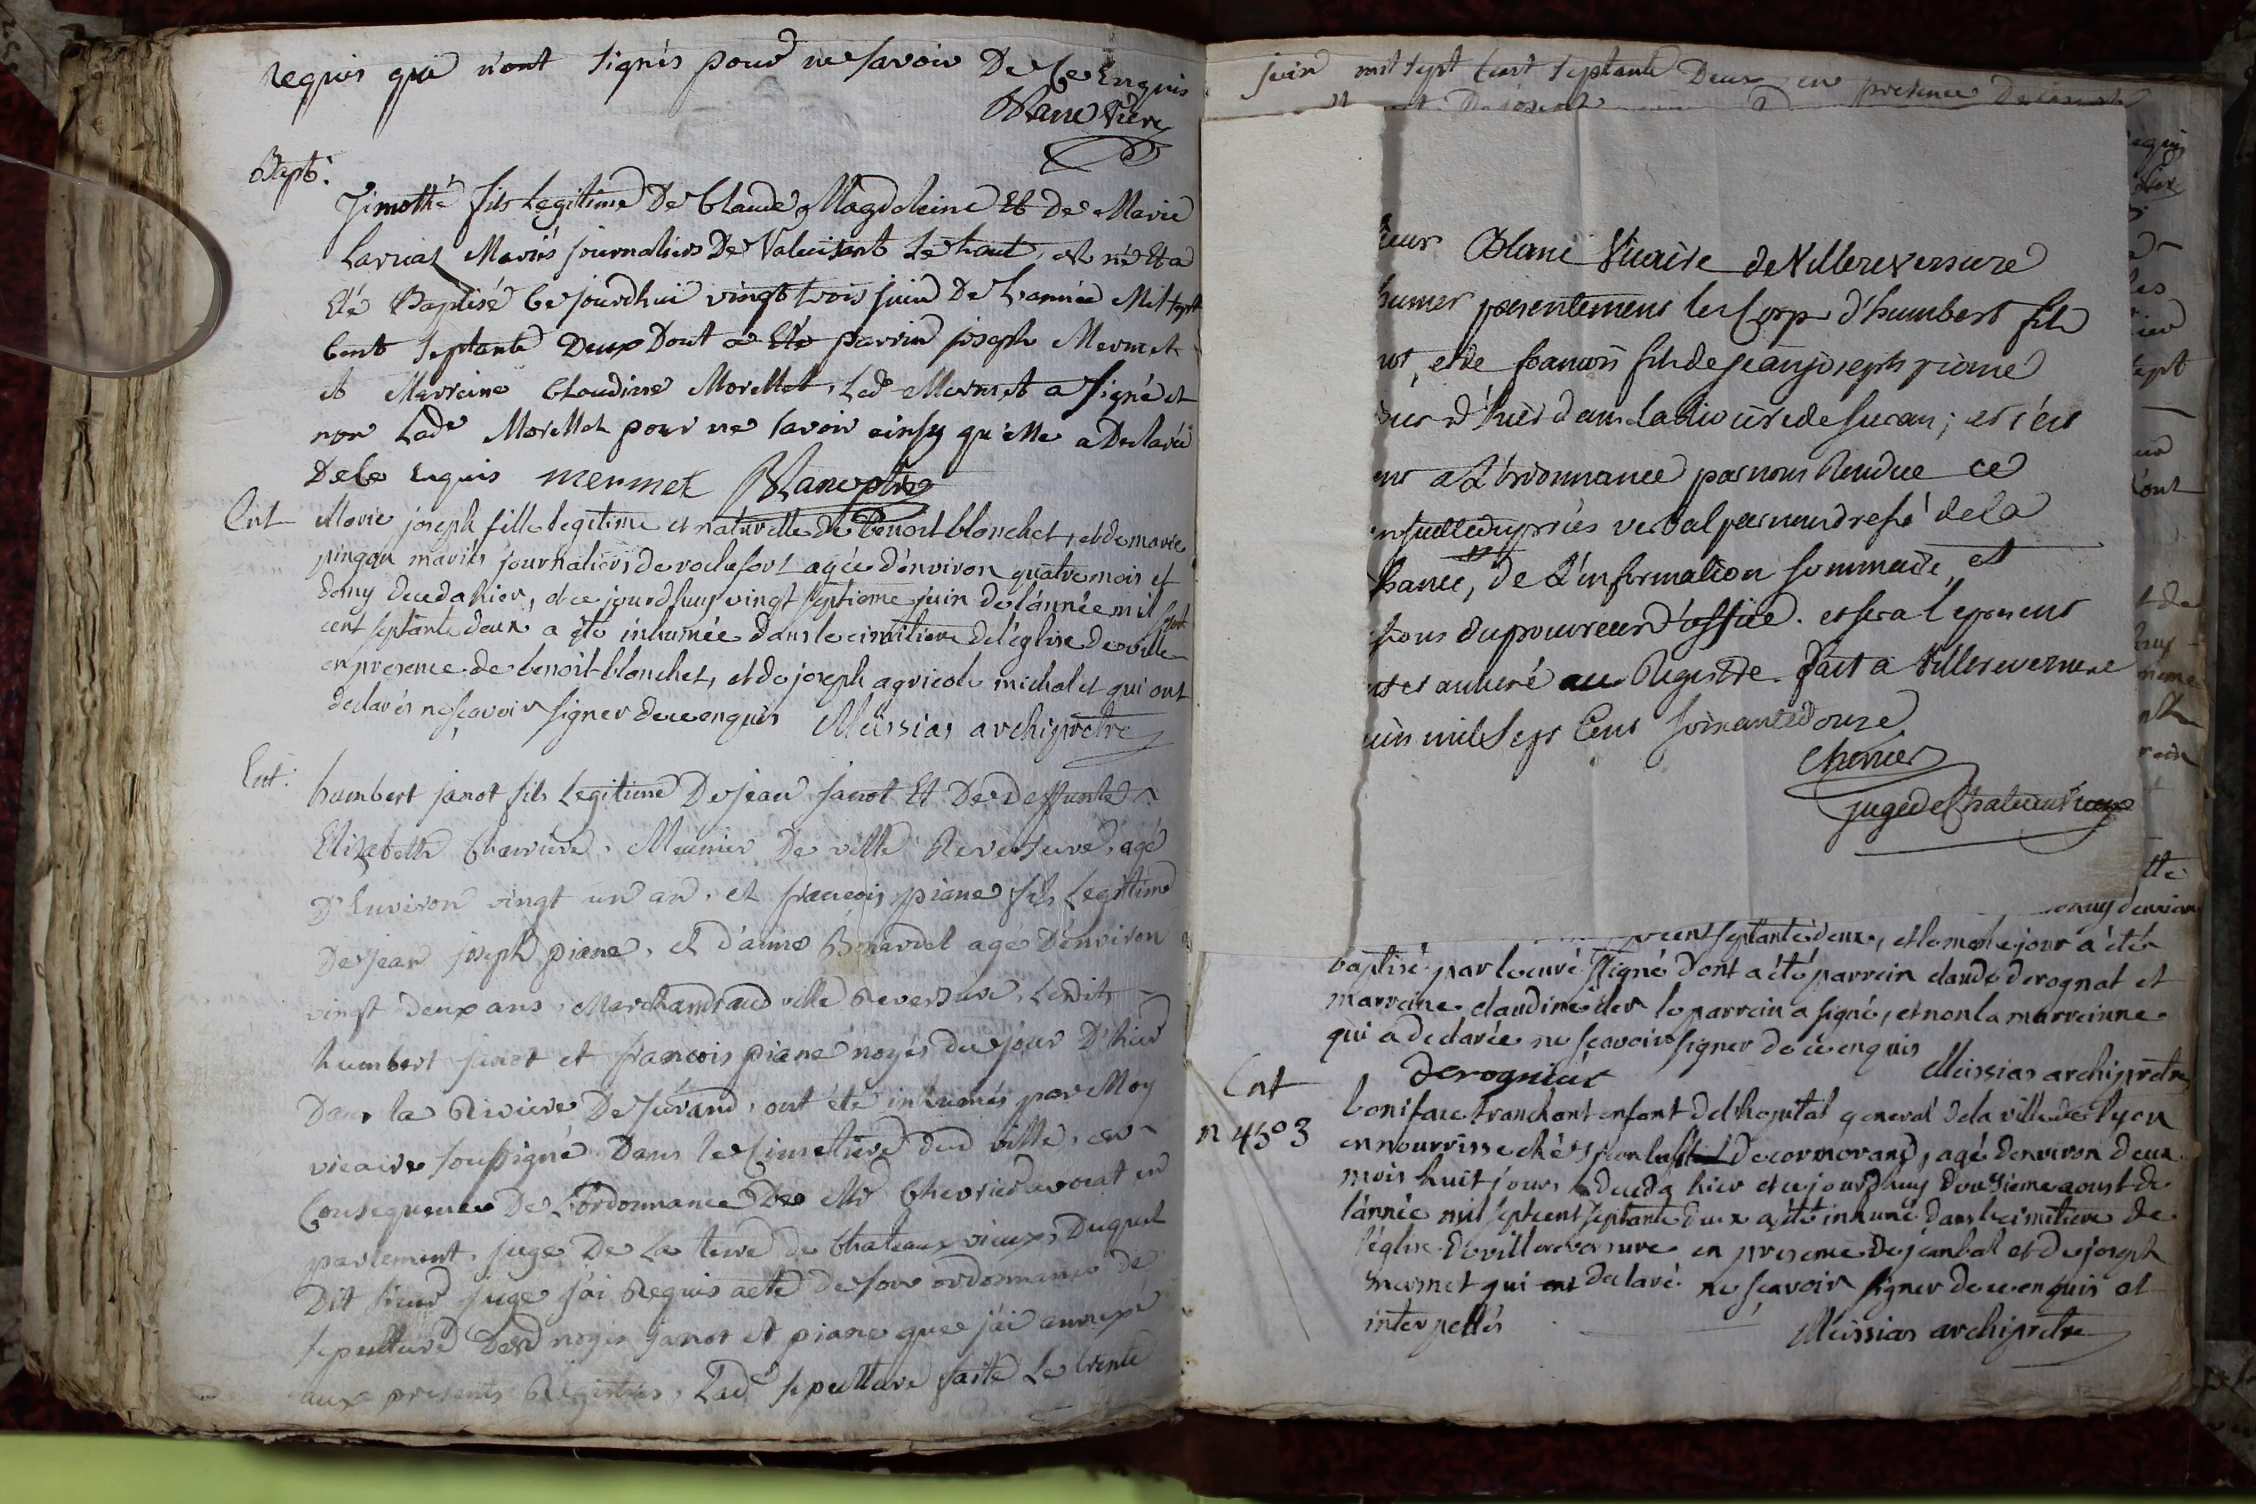 requis qui n'ont signés pour ne savoir De Ce Enquis
Blanc Vicre
Bapt:
Timothé fils Legitime De Claude Magdeleine Et De Marie
Laruaz Mariés journaliers De Valuisant Le haut, est né Et a
Eté Baptisé Ce jourdhui vingt trois juin De L'année Mil sept
Cent septante Deux Dont a Eté parrin joseph Mermet
et Marraine Claudine Morellet, Led Mermet a signé et
non Lade Morellet pour ne savoir ainsy qu'elle a Declarée
De Ce Enquis mermet Blanc ptre
Ent
Marie joseph fille legitime et naturelle de benoit blonchet, et de marie
pingon mariés journaliers de rochefort agée d'environ quatre mois et
demy decedа hier, et ce jourdhuy vingt septieme juin de l'année mil sept
cent septante deux a été inhumée dans le cimitiere de l'église de ville
en presence de benoit blonchet, et de joseph agricole micholet qui ont
declarés ne sçavoir signer de ce enquis Meissias archiprêtre
Ent:
humbert janot fils Legitime De jean janot Et De Deffunte
Elizabeth Charriere, Meunier De ville Reversure, agé
D'Environ vingt un an, et francois piane fils Legitime
De jean joseph piane, et d'anne Benardel agé D'environ
vingt deux ans, Marchand aud ville Reversure, Lesdits
humbert janot et francois piane noyés du jour D'hier
Dans la Riviere De Surand, ont été inhumés par Moy
vicaire soussigné Dans le Cimetiere dud ville, en
Consequence De L'ordonnance De Mr Chevrier avocat en
parlement, juge De La terre de Chateauxvieux, Duquel
Dit sieur juge j'ai Requis acte De son ordonnance de
sepulture Desd noyés janot et piane que j'ai annexé
aux presents Registres, Lade sepulture faite Le trente
juin mil sept Cent septante Deux en presence De
ieur Blanc Vicaire de Villereversure
humer presentement les Corps d'humbert fils
not, et de francois fils de jean joseph piane
our d'hier dans la riviere de suran; et c'est
ent a L'ordonnance par nous Rendue ce
ensuitte du procès verbal par nous dressé de la
sance, de L'information sommaire, et
sions du procureur d'office. et sera le present
et annexé au Registre. fait a Villereversure
uin mil Sept Cent soixante douze
Chevrier
juge de Chateauvieux
cent septante deux, et le meme jour a été
baptisé par le curé signé dont a été parrein claude derognat et
marreine claudine der le parrein a signé, et non la marreinne
qui a declarée ne sçavoir signer de ce enquis
derogniat Meissias archiprêtre
Ent
n 4503
boniface tranchant enfant de l'hopital general de la ville de lyon
en nourrisse chés de cormorand, agé denviron deux
mois huit jours decedа hier et ce jourdhuy dousieme aoust de
l'année mil sept cent septante deux a été inhumé dans le cimitiere de
l'église de villereversure en presence de jean bal et de joseph
mermet qui ont declaré ne sçavoir signer de ce enquis et
interpellés
Meissias archiprêtre